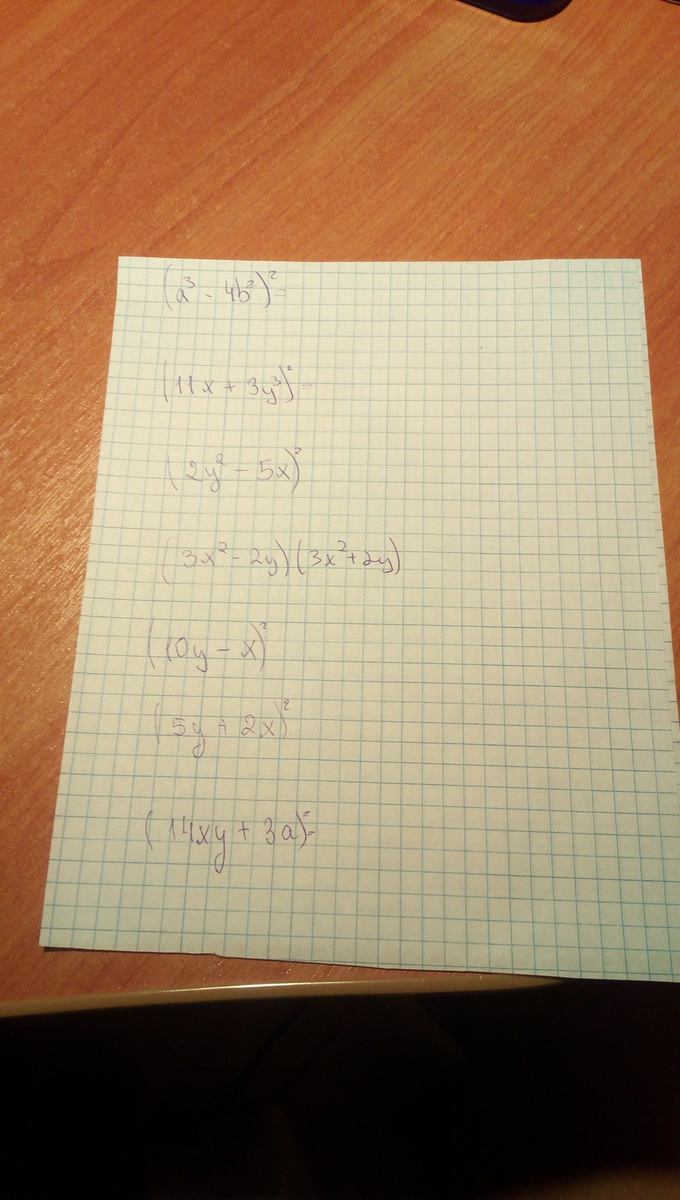 (a³ - 4b²)² =
(11x + 3y³)² =
(2y² - 5x)²
(3x² - 2y)(3x² + 2y)
(10y - x)²
(5y + 2x)²
(14xy + 3a)² =